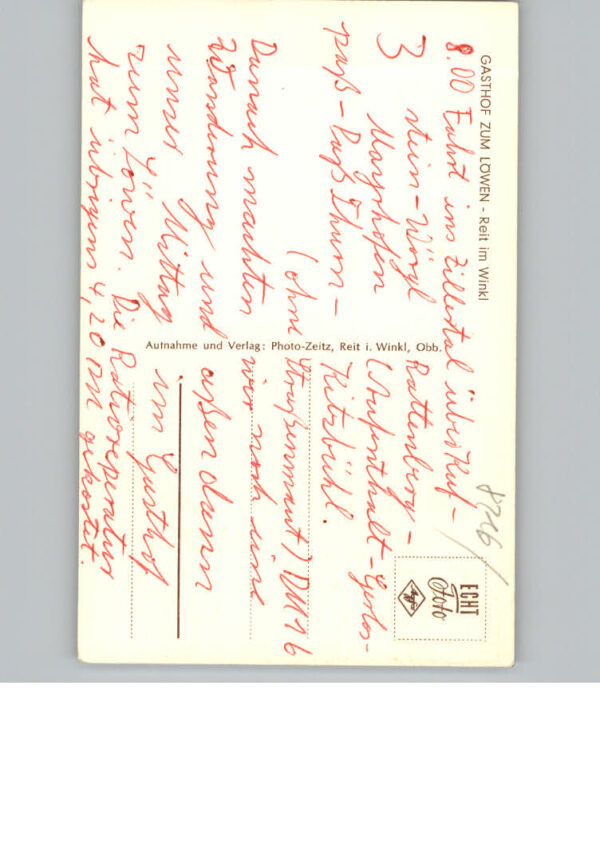 GASTHOF ZUM LÖWEN - Reit im Winkl
8.00 Fahrt ins Zillertal über Kuf-
3 stein - Wörgl Rattenberg -
Mayrhofen (Aufenthalt - Gerlos-
paß - Paß Thurn - Kitzbühl.
(ohne Straßenmaut) DM 16
Danach machten wir noch eine
Wanderung und aßen dann
unser Mittag im Gasthof
zum Löwen. Die Radioreperatur
hat übrigens 4,20 DM gekostet.
Aufnahme und Verlag: Photo-Zeitz, Reit i. Winkl, Obb.
8716/
ECHT
Foto
Agfa